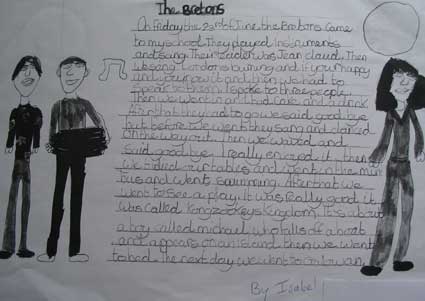 The Bretons
On Friday the 23rd of June the Bretons came
to my school. They played instruments
and sang. Their leader was Jean claud. Then
We sang London's burning and if you happy
and you know it and then we had to
speak to them. I spoke to three people.
Then we went in and had Cake and a drink
After that they had to go we said good bye
but before we went they sang and danced
on the way out. Then we waved and
said good bye. I really enjoyed it, then
we tidied our tables and went in the mini
bus and went swimming. After that we
went to see a play. It was really good it
was called Kangzookeys Kingdom. It's about
a boy called michael who falls of a boat
and appears on an island then we went
to bed. The next day we went to
By Isabel